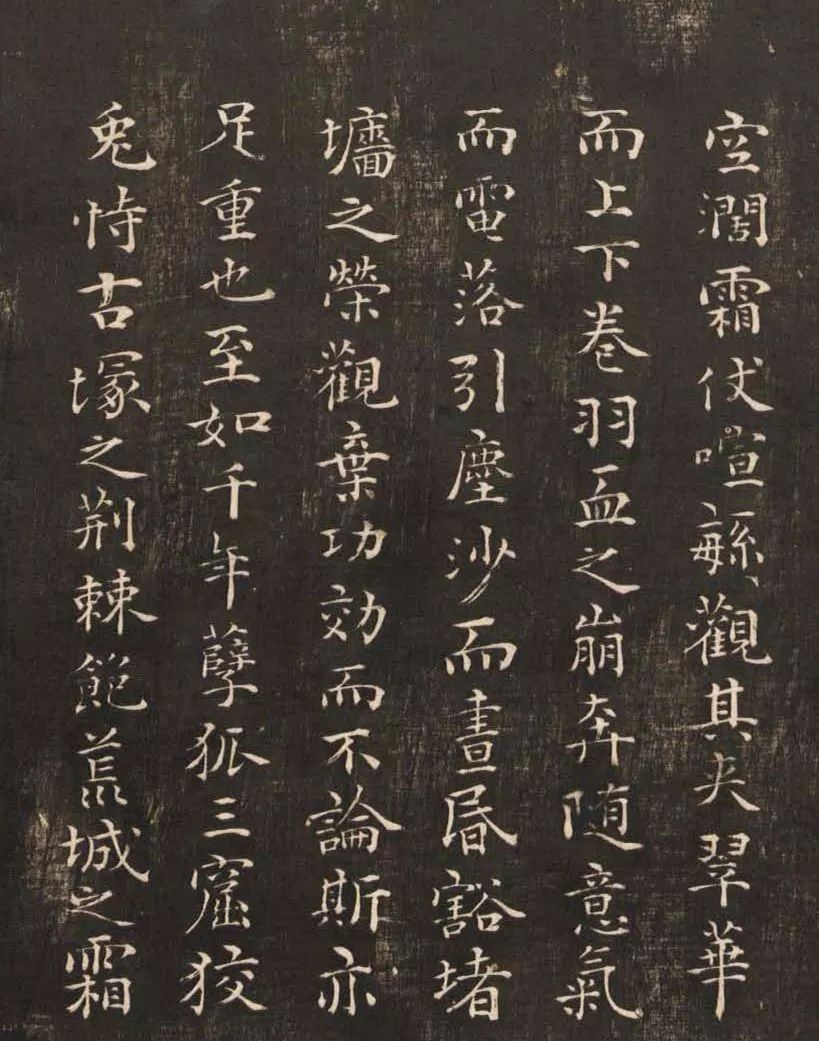 空濶霜仗喧繇觀其夾翠華
而上下卷羽㳑之崩奔随意氣
而雷落引塵沙而晝昏豁堵
墻之榮觀棄功効而不論斯亦
足重也至如千年孽狐三窟狡
兎恃古塚之荆棘飽荒城之霜